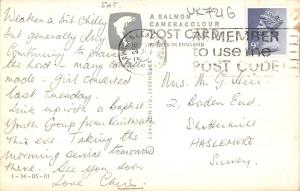 SAT.
UK7216
Weather a bit chilly
but generally dry.
Continuing to praise
the Lord - many contacts
made - Girl converted
last Tuesday.
Link up with a Baptist
Youth Group from
this eve. Taking the
morning service tomorrow
there. See you soon
Love Chris.
1-34-05-01
A SALMON
CAMERACOLOUR
POST CARD
PRINTED IN ENGLAND
REMEMBER
to use the
POST CODE
Mrs. M.
2, Boden End,
Shottermill
HASLEMERE
Surrey.